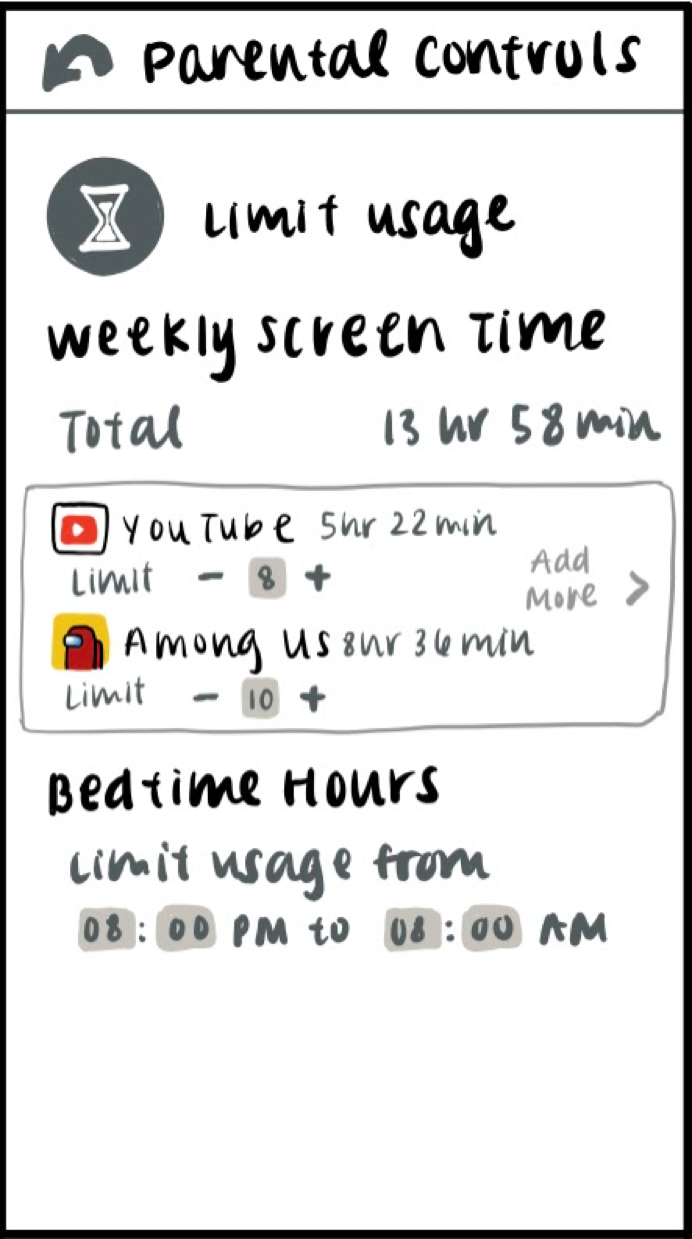 Parental Controls
Limit usage
Weekly Screen Time
Total 13 hr 58 min
YouTube 5hr 22min
Limit - 8 +
Add
More >
Among Us 8hr 36min
Limit - 10 +
Bedtime Hours
Limit usage from
08:00 PM to 08:00 AM